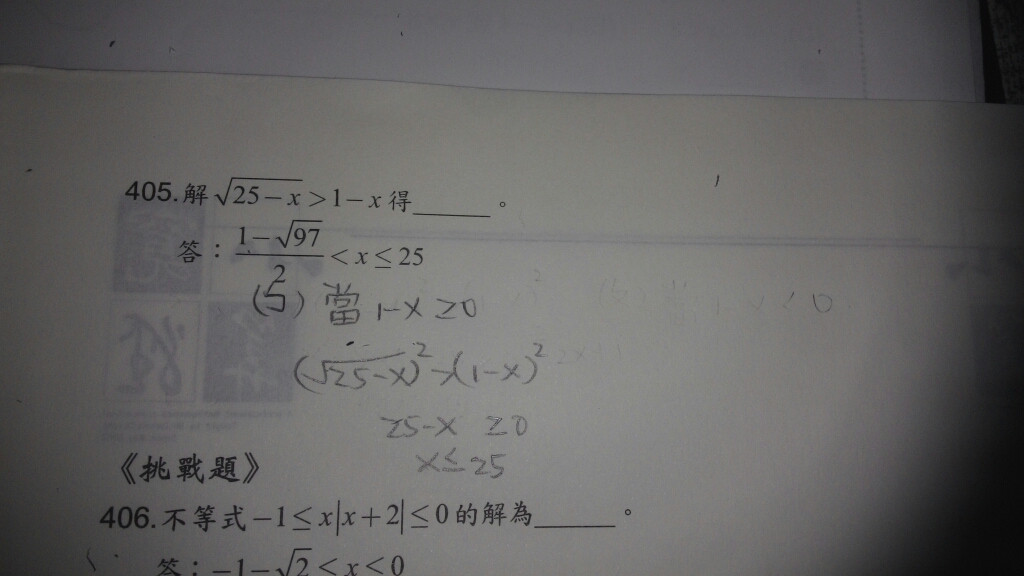 405.解√25-x>1-x得______。
答：1-√97/2<x≤25
(ㄅ)當1-x≥0
(√25-x)²>(1-x)²
25-x≥0
x≤25
《挑戰題》
406.不等式-1≤x|x+2|≤0的解為______。
答：-1-√2<x<0